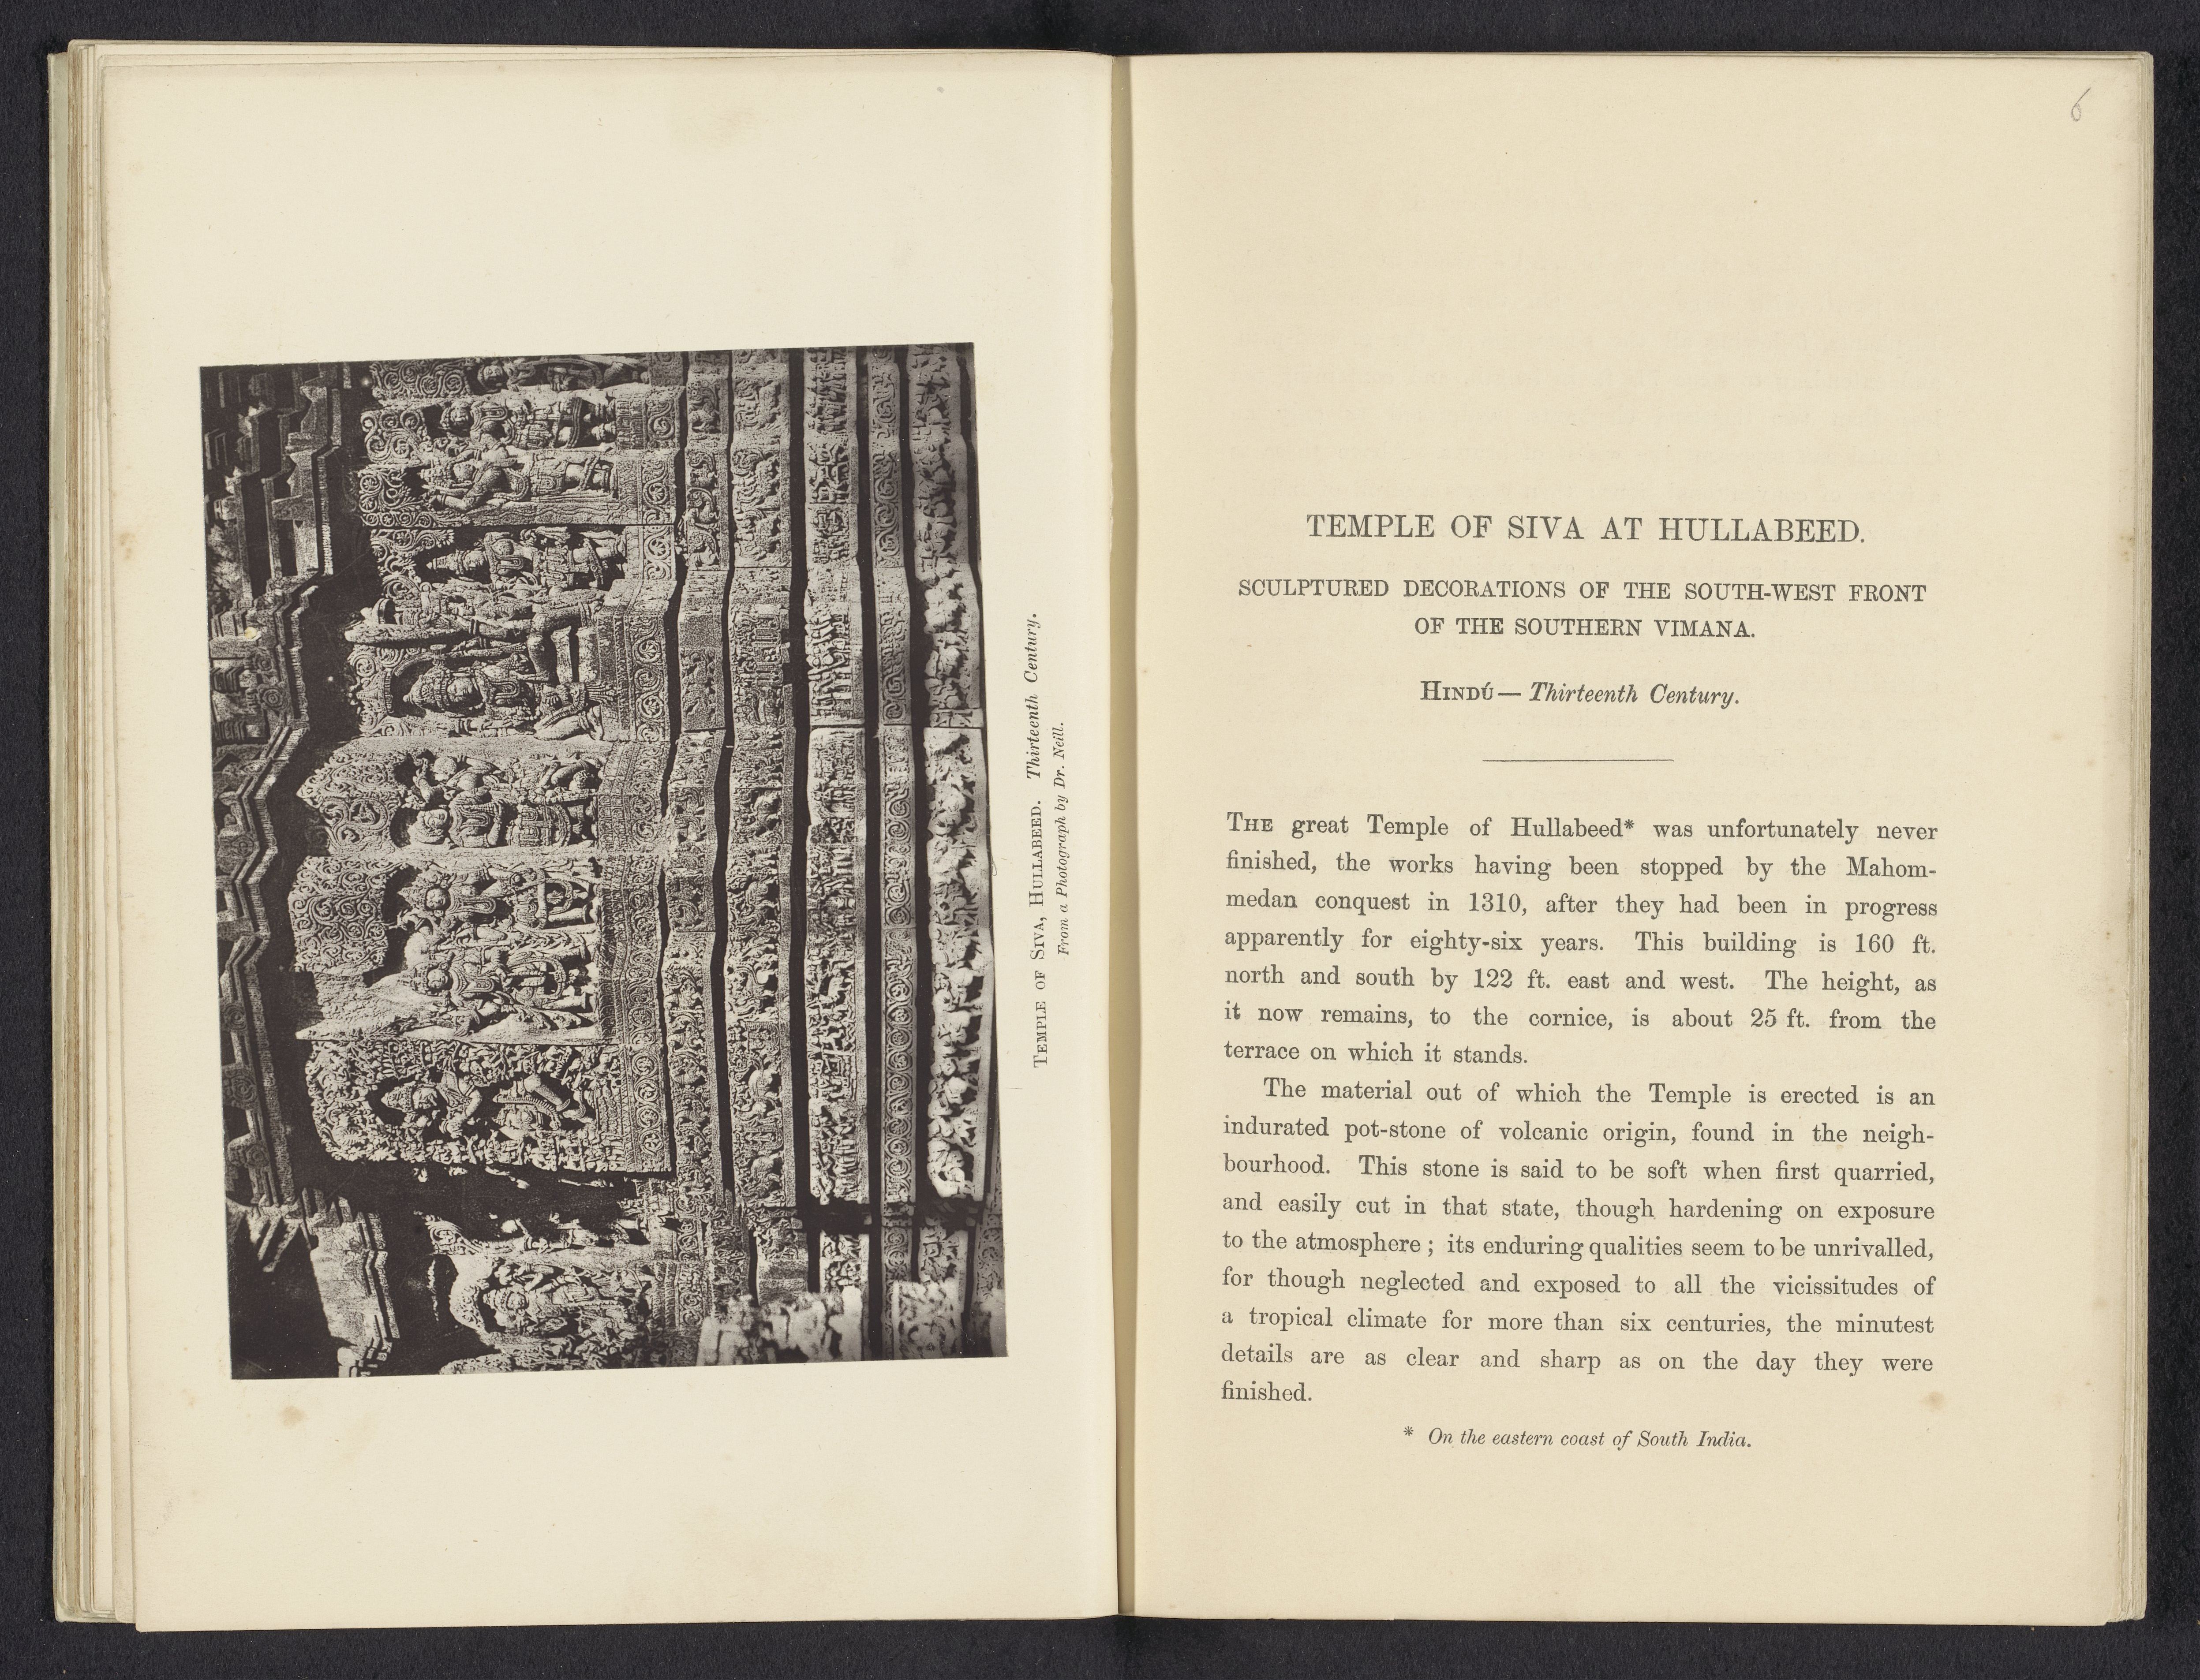 TEMPLE OF SIVA, HULLABEED. Thirteenth Century.
From a Photograph by Dr. Neill.
6
TEMPLE OF SIVA AT HULLABEED.
SCULPTURED DECORATIONS OF THE SOUTH-WEST FRONT
OF THE SOUTHERN VIMANA.
HINDÚ — Thirteenth Century.
THE great Temple of Hullabeed* was unfortunately never
finished, the works having been stopped by the Mahom-
medan conquest in 1310, after they had been in progress
apparently for eighty-six years. This building is 160 ft.
north and south by 122 ft. east and west. The height, as
it now remains, to the cornice, is about 25 ft. from the
terrace on which it stands.
The material out of which the Temple is erected is an
indurated pot-stone of volcanic origin, found in the neigh-
bourhood. This stone is said to be soft when first quarried,
and easily cut in that state, though hardening on exposure
to the atmosphere; its enduring qualities seem to be unrivalled,
for though neglected and exposed to all the vicissitudes of
a tropical climate for more than six centuries, the minutest
details are as clear and sharp as on the day they were
finished.
* On the eastern coast of South India.